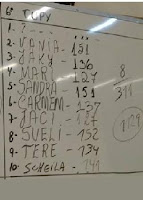 6ª TUPY
1- ? - - - -
2- VANIA- 151
3- JAKY - 136
4- MARI - 127
5- SANDRA - 151
6- CARMEM - 137
7- JACI - 127
8- SUELI - 152
9- TERE - 134
10- SCHEILA - 141
8
311
1129